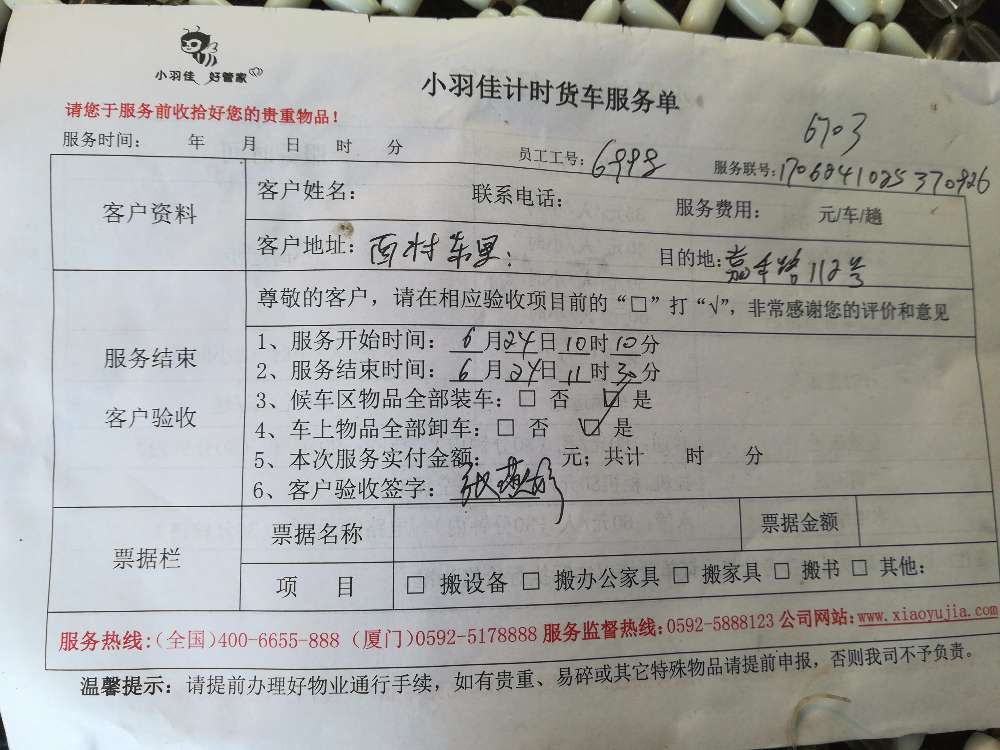 小羽佳 好管家
小羽佳计时货车服务单
请您于服务前收拾好您的贵重物品！
6703
服务时间： 年 月 日 时 分 员工工号：6998 服务联号：1706841025370926
客户资料
客户姓名： 联系电话： 服务费用： 元/车/趟
客户地址：西村车里： 目的地：嘉禾路112号
服务结束
客户验收
尊敬的客户，请在相应验收项目前的“□”打“√”，非常感谢您的评价和意见
1、服务开始时间：6月24日10时10分
2、服务结束时间：6月24日11时30分
3、候车区物品全部装车：□ 否 ☑ 是
4、车上物品全部卸车：□ 否 ☑ 是
5、本次服务实付金额： 元；共计 时 分
6、客户验收签字：
票据栏
票据名称 票据金额
项 目 □ 搬设备 □ 搬办公家具 □ 搬家具 □ 搬书 □ 其他：
服务热线：（全国）400-6655-888（厦门）0592-5178888 服务监督热线：0592-5888123 公司网站：www.xiaoyujia.com
温馨提示：请提前办理好物业通行手续，如有贵重、易碎或其它特殊物品请提前申报，否则我司不予负责。